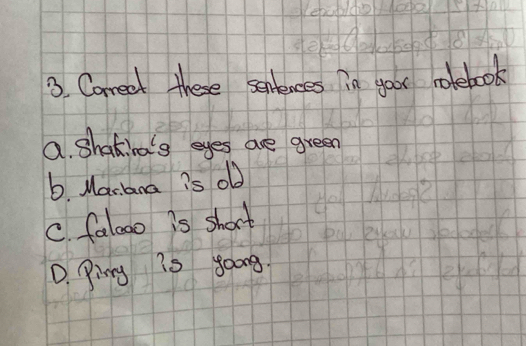 3. Correct these sentences in your notebook
a. Shakira's eyes are green
b. Mariana is old
c. falcao is short
D. Pirry is young.